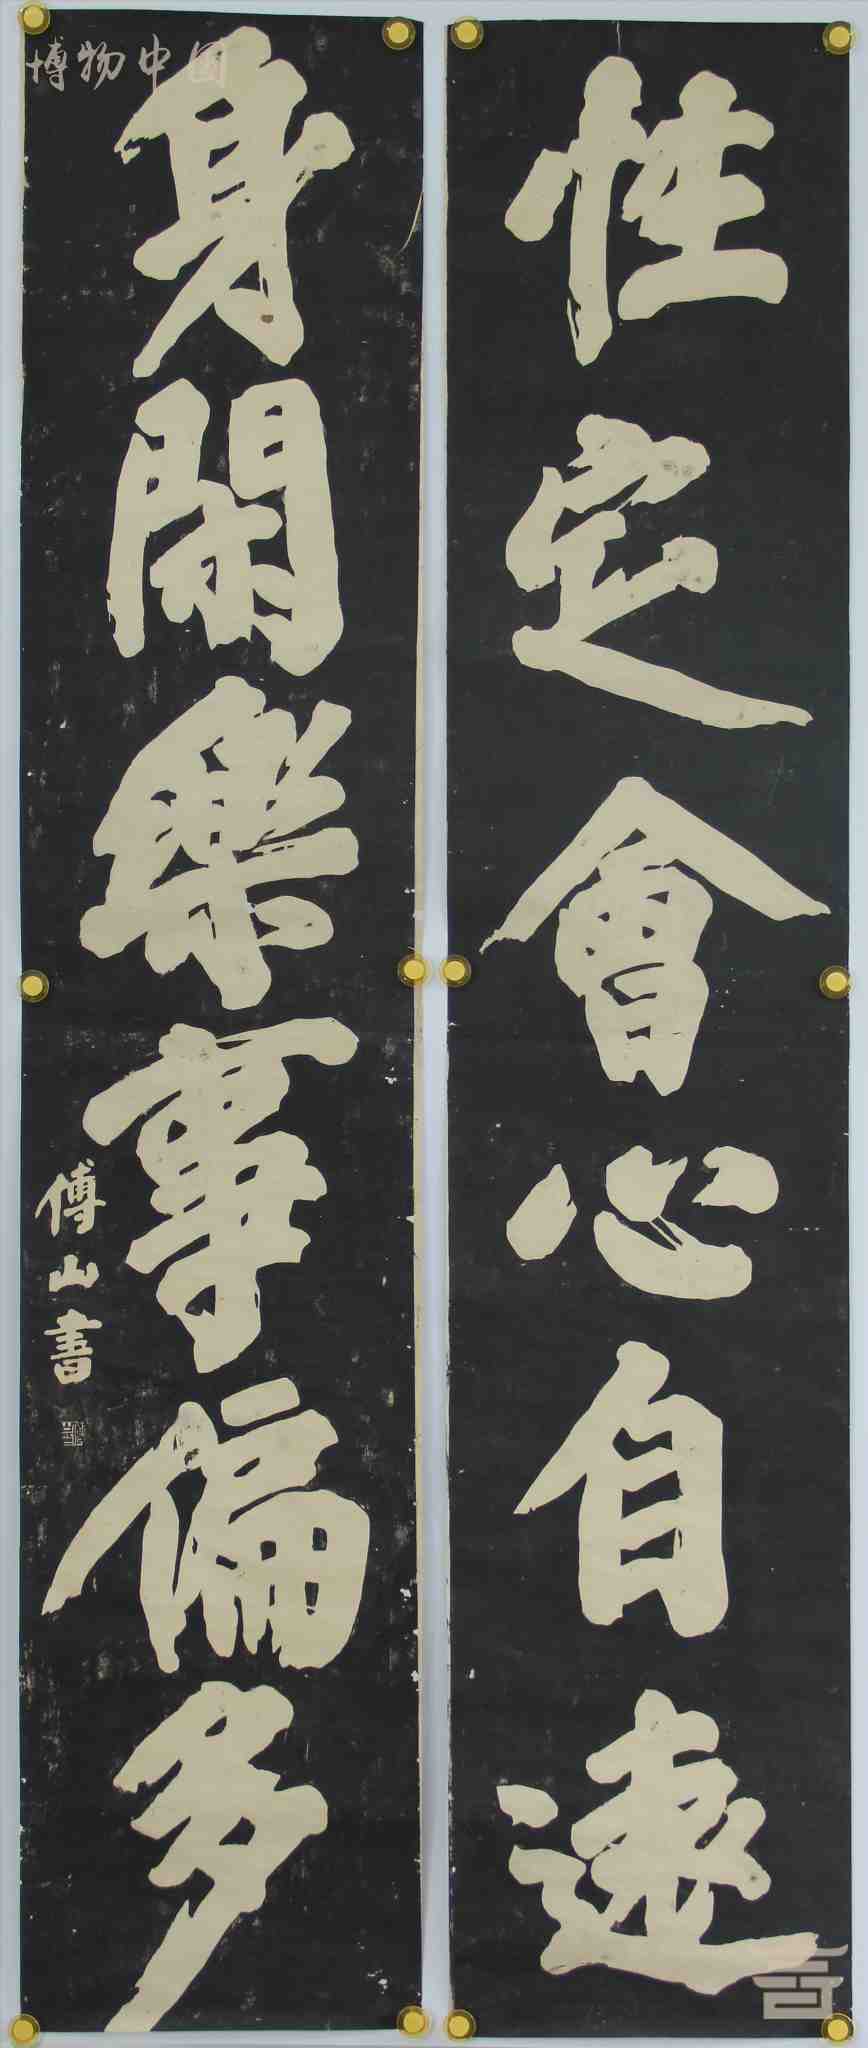 性定會心自遠
身閒樂事偏多
傅山書
博物中国